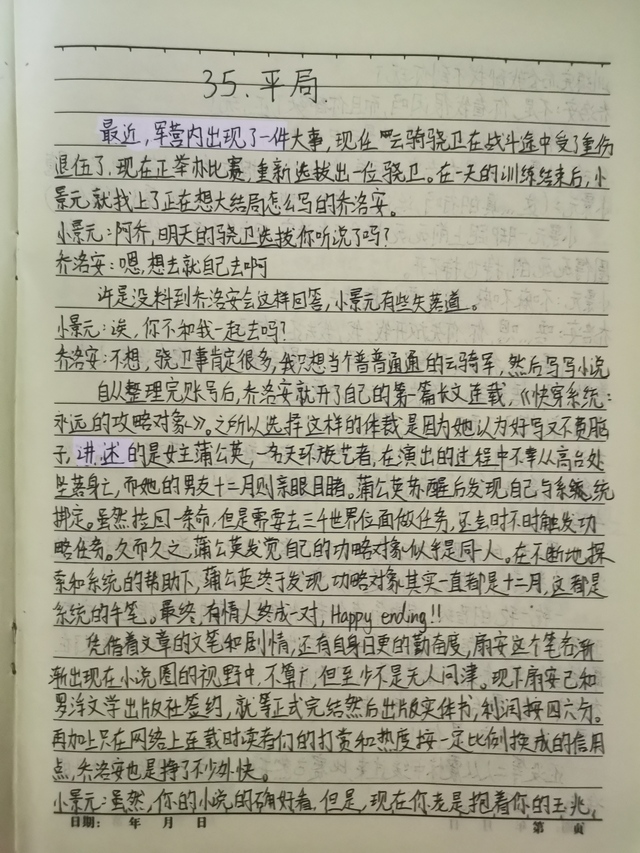 35.平局.
最近,军营内出现了一件大事,现任云骑骁卫在战斗途中受了重伤
退伍了,现在正举办比赛,重新选拔出一位骁卫。在一天的训练结束后,小
景元就找上了正在想大结局怎么写的乔洛安。
小景元:阿乔,明天的骁卫选拔你听说了吗?
乔洛安:嗯,想去就自己去啊
许是没料到乔洛安会这样回答,小景元有些失落道。
小景元:诶,你不和我一起去吗?
乔洛安:不想,骁卫事肯定很多,我只想当个普普通通的云骑军,然后写写小说
自从整理完账号后,乔洛安就开了自己的第一篇长文连载,《快穿系统:
永远的攻略对象》。之所以选择这样的体裁是因为她认为好写又不费脑
子,讲述的是女主蒲公英,一名天环族艺者,在演出的过程中不幸从高台处
坠落身亡,而她的男友十二月则亲眼目睹。蒲公英苏醒后发现自己与系统
绑定。虽然捡回一条命,但是需要去三千世界位面做任务,还会时不时触发功
略任务。久而久之,蒲公英发觉自己的功略对象似乎是同一人。在不断地探
索和系统的帮助下,蒲公英终于发现功略对象其实一直都是十二月,这都是
系统的手笔。最终,有情人终成一对,Happy ending!!
凭借着文章的文笔和剧情,还有自身日更的勤奋度,扇安这个笔名渐
渐出现在小说圈的视野中,不算广,但至少不是无人问津。现下扇安已和
罗浮文学出版社签约,就等正式完结然后出版实体书,利润按四六分。
再加上只在网络上连载时读者们的打赏和热度按一定比例换成的信用
点,乔洛安也是挣了不少外快。
小景元:虽然,你的小说的确好看,但是,现在你老是抱着你的玉兆,
日期: 年 月 日 第 页